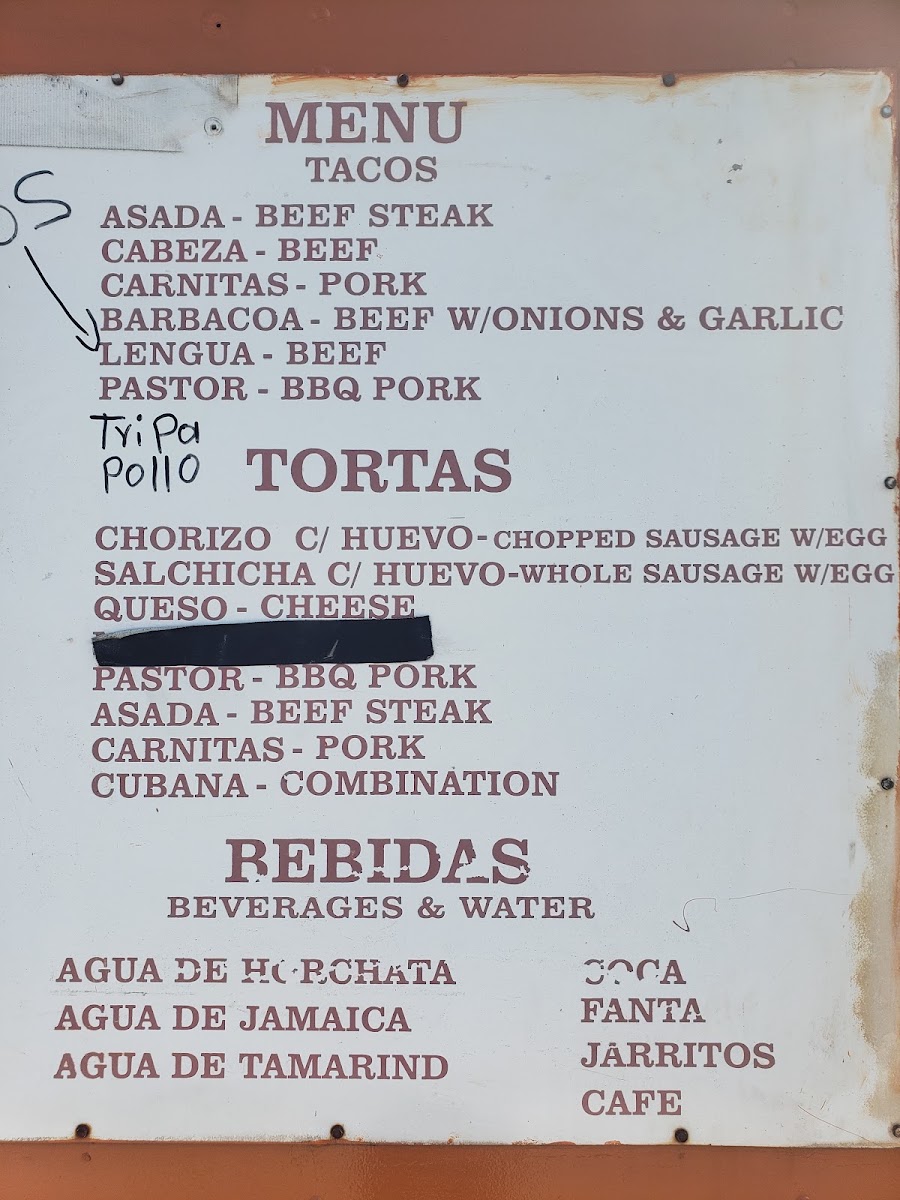 MENU
TACOS
ASADA - BEEF STEAK
CABEZA - BEEF
CARNITAS - PORK
BARBACOA - BEEF W/ONIONS & GARLIC
LENGUA - BEEF
PASTOR - BBQ PORK
TriPa
Pollo
TORTAS
CHORIZO C/ HUEVO - CHOPPED SAUSAGE W/EGG
SALCHICHA C/ HUEVO - WHOLE SAUSAGE W/EGG
QUESO - CHEESE
PASTOR - BBQ PORK
ASADA - BEEF STEAK
CARNITAS - PORK
CUBANA - COMBINATION
BEBIDAS
BEVERAGES & WATER
AGUA DE HORCHATA
AGUA DE JAMAICA
AGUA DE TAMARIND
COCA
FANTA
JARRITOS
CAFE